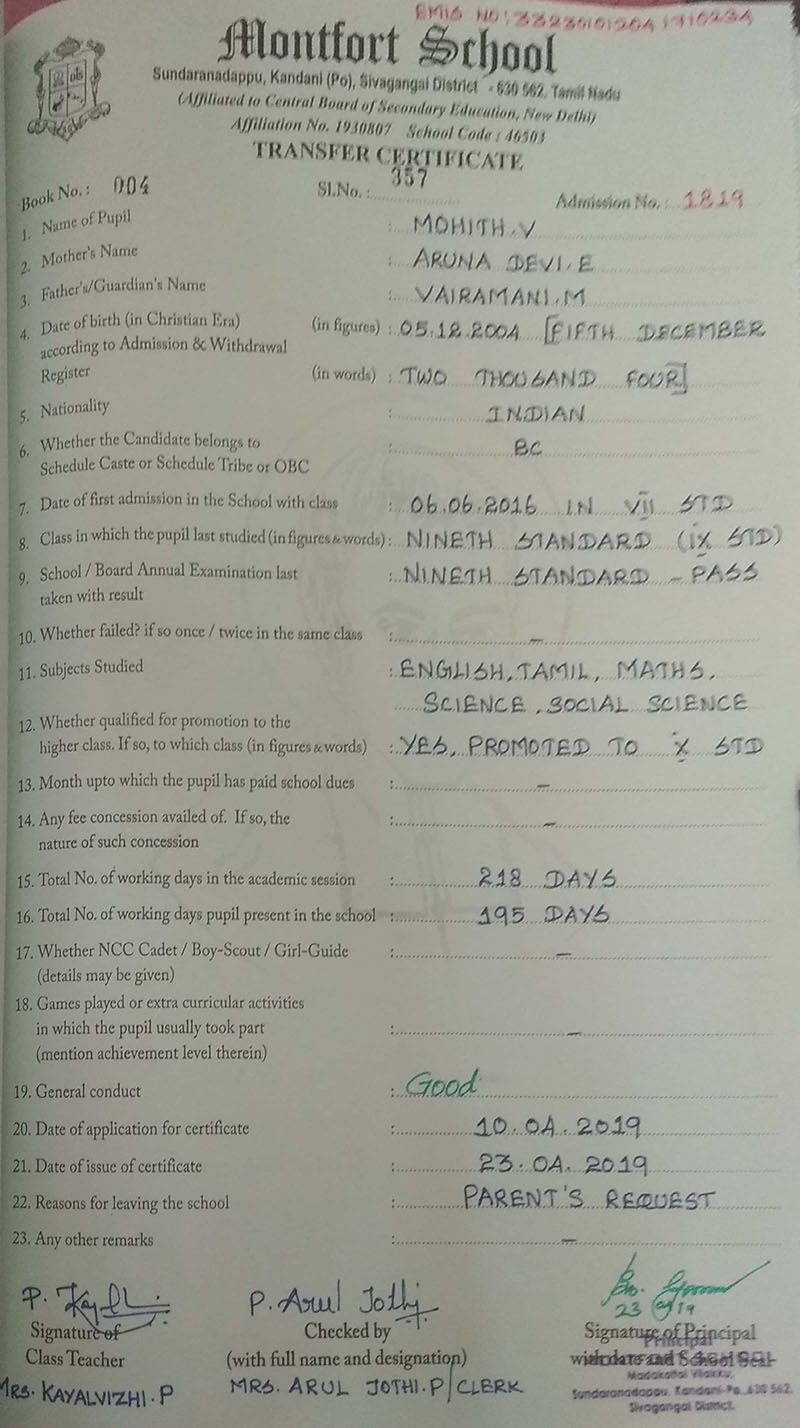 EMIS NO: 33230101204 1910234
Montfort School
Sundaranadappu, Kandani (Po), Sivagangai District - 630 562. Tamil Nadu
(Affiliated to Central Board of Secondary Education, New Delhi)
Affiliation No. 1930807 School Code : 46503
TRANSFER CERTIFICATE
Book No. : 004 Sl.No. : 357 Admission No. : 1819
1. Name of Pupil : MOHITH.V
2. Mother's Name : ARUNA DEVI.E
3. Father's/Guardian's Name : VAIRAMANI.M
4. Date of birth (in Christian Era) (in figures) : 05.12.2004 [FIFTH DECEMBER
according to Admission & Withdrawal
Register (in words) : TWO THOUSAND FOUR]
5. Nationality : INDIAN
6. Whether the Candidate belongs to : BC
Schedule Caste or Schedule Tribe or OBC
7. Date of first admission in the School with class : 06.06.2016 IN VII STD
8. Class in which the pupil last studied (in figures & words) : NINETH STANDARD (IX STD)
9. School / Board Annual Examination last : NINETH STANDARD - PASS
taken with result
10. Whether failed? if so once / twice in the same class : -
11. Subjects Studied : ENGLISH, TAMIL, MATHS,
SCIENCE, SOCIAL SCIENCE
12. Whether qualified for promotion to the
higher class. If so, to which class (in figures & words) : YES, PROMOTED TO X STD
13. Month upto which the pupil has paid school dues : -
14. Any fee concession availed of. If so, the : -
nature of such concession
15. Total No. of working days in the academic session : 218 DAYS
16. Total No. of working days pupil present in the school : 195 DAYS
17. Whether NCC Cadet / Boy-Scout / Girl-Guide : -
(details may be given)
18. Games played or extra curricular activities
in which the pupil usually took part : -
(mention achievement level therein)
19. General conduct : Good
20. Date of application for certificate : 10.04.2019
21. Date of issue of certificate : 23.04.2019
22. Reasons for leaving the school : PARENT'S REQUEST
23. Any other remarks : -
P. Arul Jothi
23
Signature of Checked by Signature of Principal
Principal
Class Teacher (with full name and designation) with date and School Seal
MRS. KAYALVIZHI.P MRS. ARUL JOTHI.P/CLERK
Sundaranadappu, Kandani-Po, 630 562.
Sivagangai District.